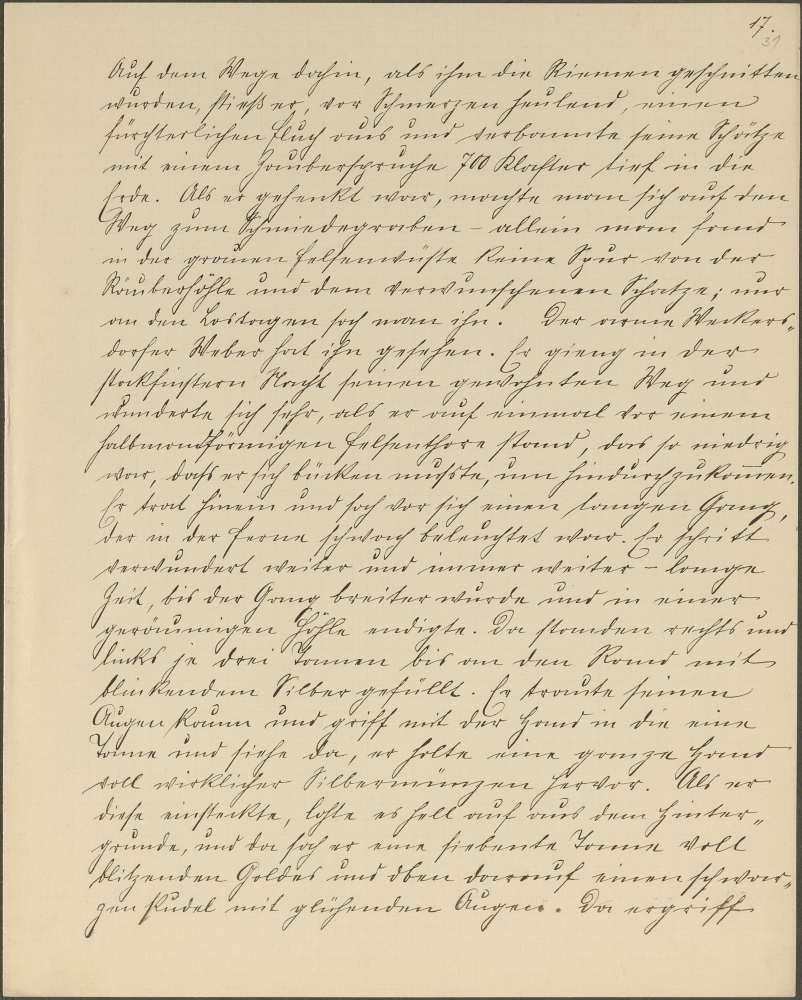 17.
31
Auf dem Wege dahin, als ihm die Riemen geschnitten
wurden, stieß er, vor Schmerzen heulend, einen
fürchterlichen Fluch aus und verbannte seine Schätze
mit einem Zauberspruche 700 Klafter tief in die
Erde. Als er gehenkt war, machte man sich auf den
Weg zum Schmiedegraben – allein man fand
in der grauen Felsenwüste keine Spur von der
Räuberhöhle und dem verwunschenen Schatze; nur
an den Lostagen sah man ihn. Der arme Weckers„
dorfer Weber hat ihn gesehen. Er gieng in der
stockfinstern Nacht seinen gewohnten Weg und
wunderte sich sehr, als er auf einmal vor einem
halbmondförmigen Felsenthore stand, das so niedrig
war, dass er sich bücken musste, um hindurchzukommen.
Er trat hinein und sah vor sich einen langen Gang,
der in der Ferne schwach beleuchtet war. Er schritt
verwundert weiter und immer weiter – lange
Zeit, bis der Gang breiter wurde und in einer
geräumigen Höhle endigte. Da standen rechts und
links je drei Tonnen bis an den Rand mit
blinkendem Silber gefüllt. Er traute seinen
Augen kaum und griff mit der Hand in die eine
Tonne und siehe da, er holte eine ganze Hand
voll wirklicher Silbermünzen hervor. Als er
diese einsteckte, lohte es hell auf aus dem Hinter„
grunde, und da sah er eine siebente Tonne voll
blitzenden Goldes und oben darauf einen schwar„
zen Pudel mit glühenden Augen. Da ergriff